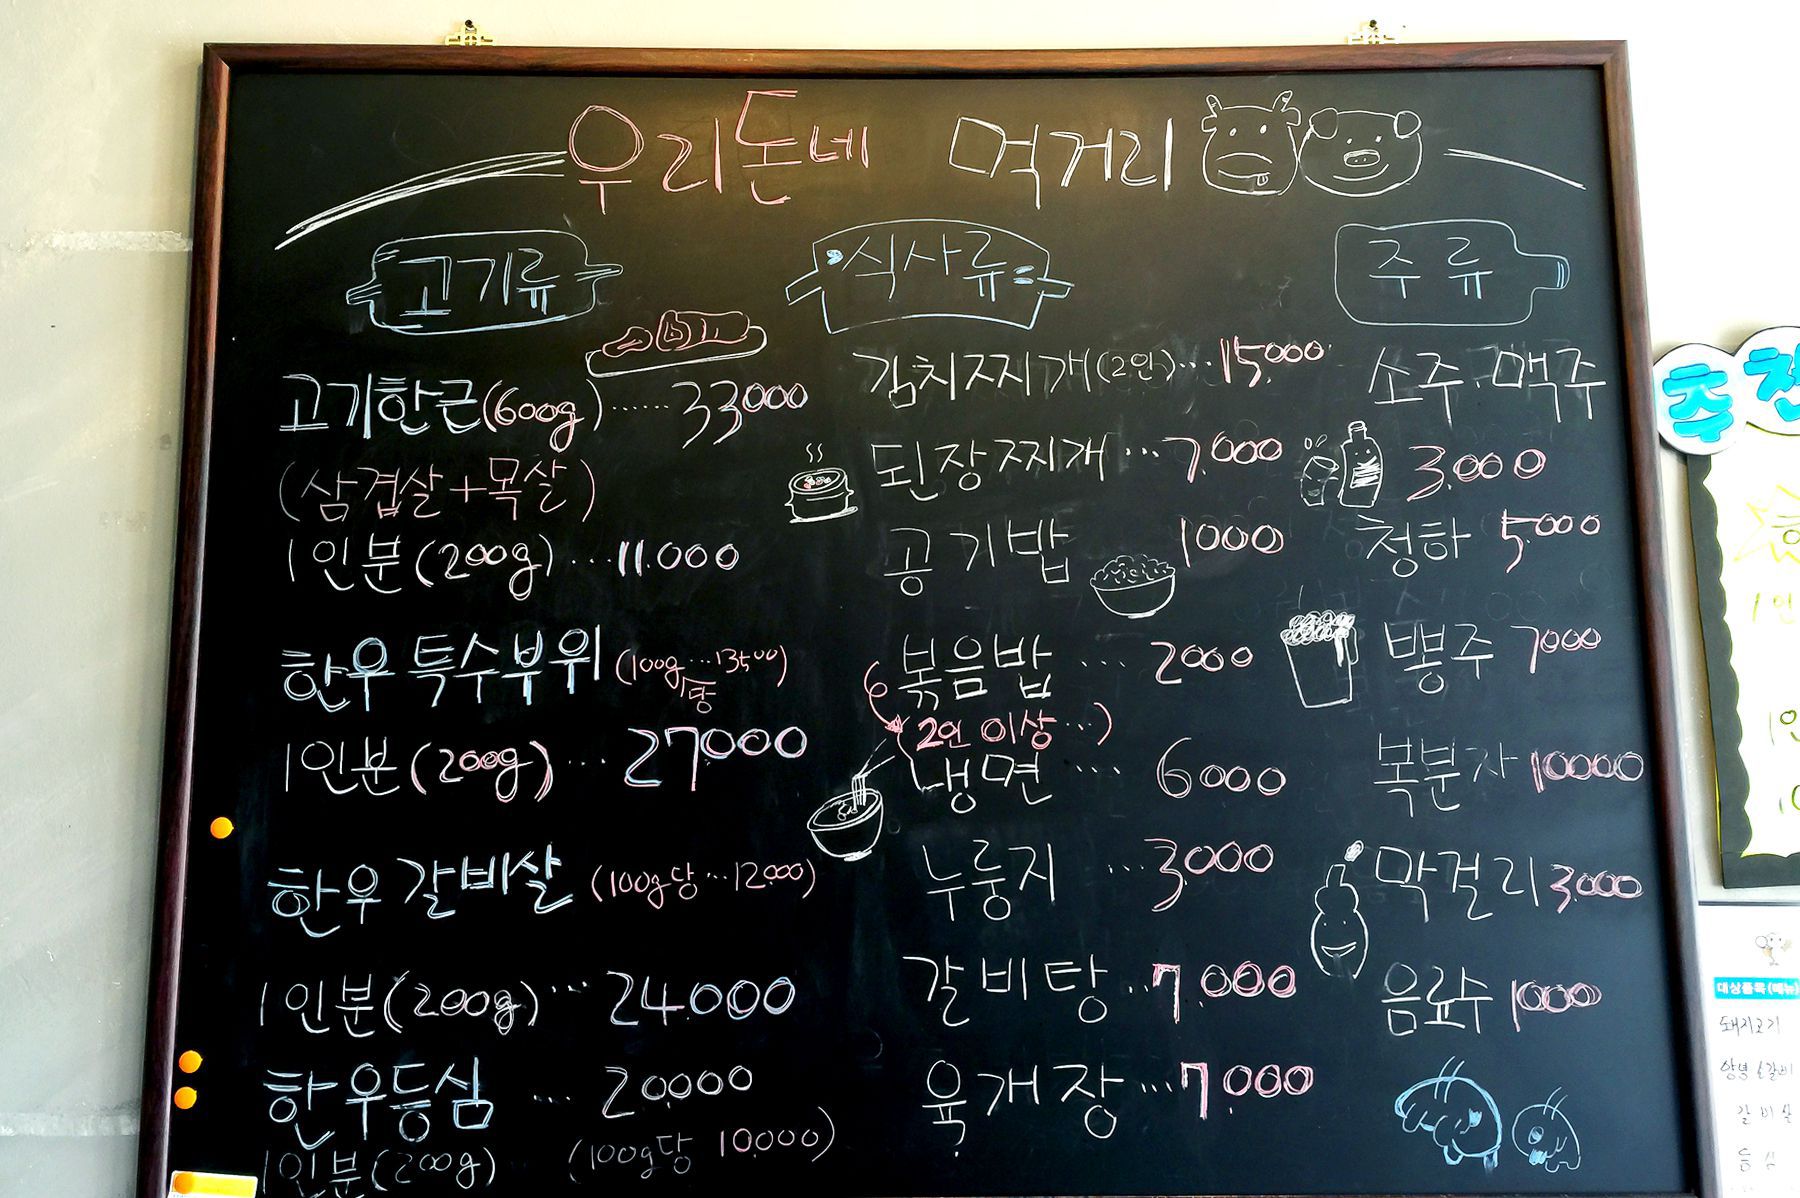 우리돈네 먹거리
고기류
고기한근(600g)······33000
(삼겹살+목살)
1인분(200g)···11.000
한우 특수부위 (100g당···13500)
1인분(200g)···27000
한우 갈비살 (100g당···12.000)
1인분(200g)···24.000
한우등심 ···· 20.000
1인분(200g) (100g당 10.000)
식사류
김치찌개(2인)···15.000
된장찌개···7.000
공기밥 1000
볶음밥 ···· 2000
(2인 이상···)
냉면 ···· 6000
누룽지 ···3.000
갈비탕···7.000
육개장···7.000
주류
소주.맥주
3.000
청하 5000
뽕주 7000
복분자 10000
막걸리 3.000
음료수 1000
추천
대상품목(메뉴)
돼지고기
갈비살
등심